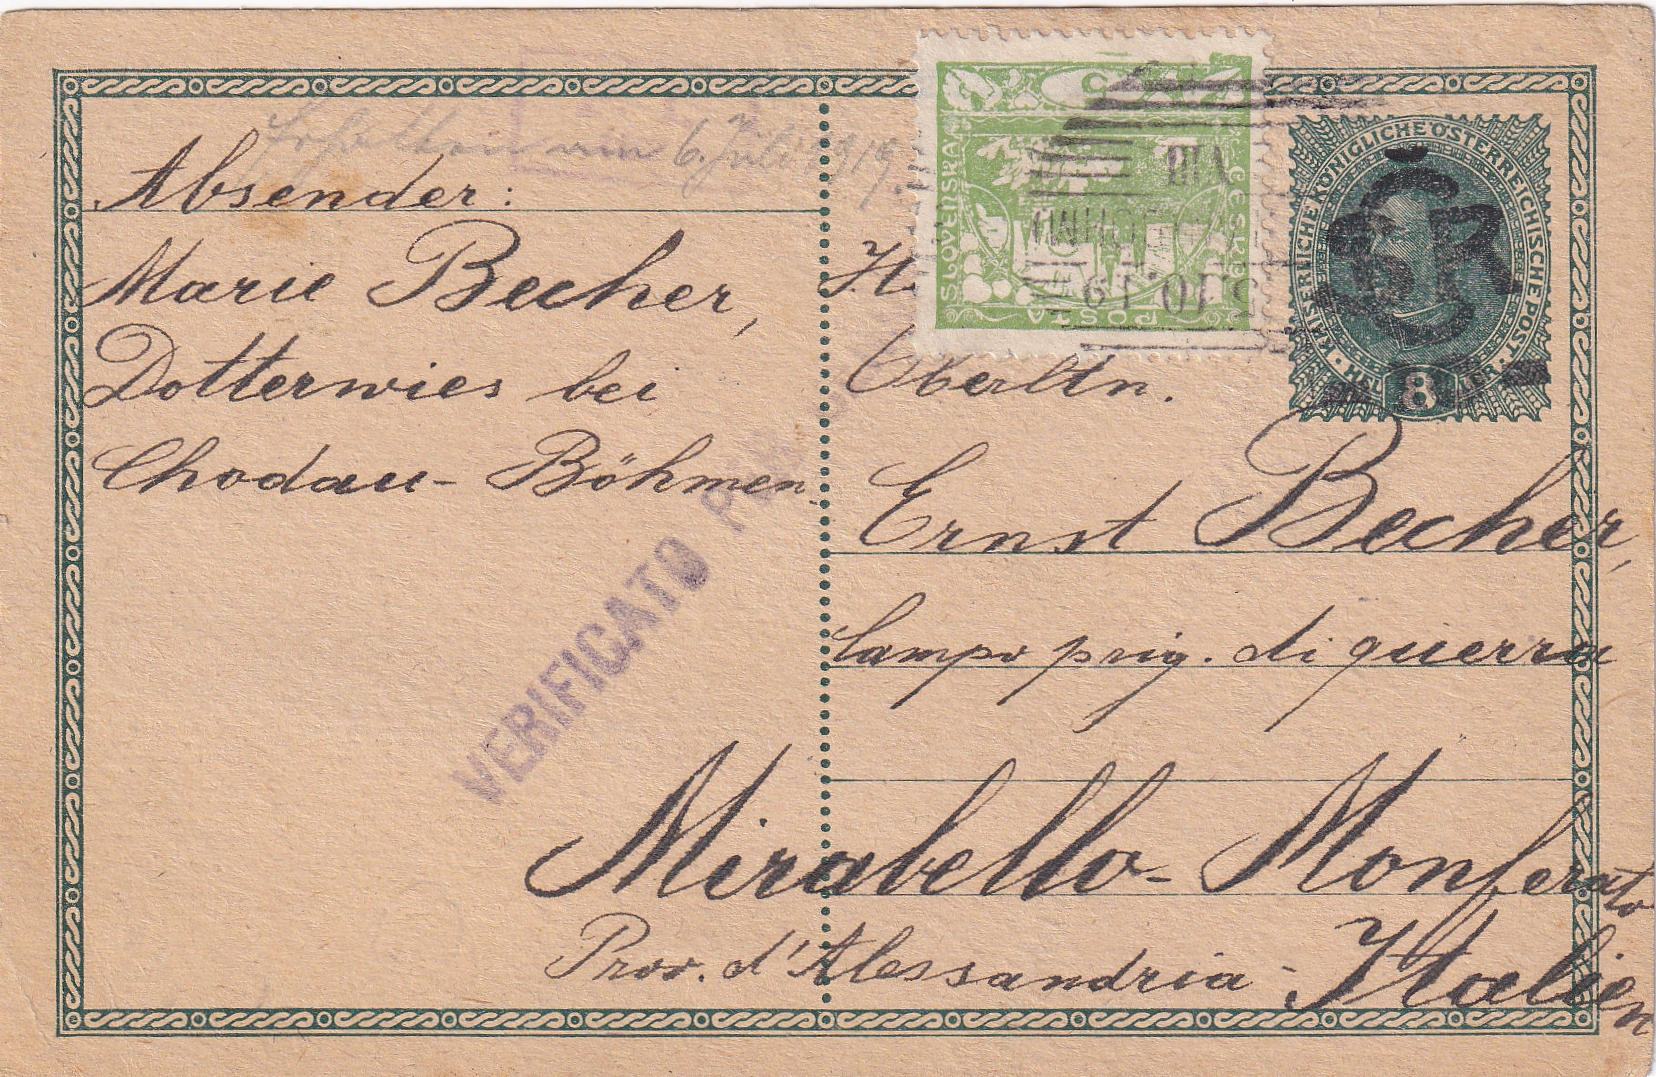 Erhalten am 6. Juli 1919.
Absender:
Marie Becher,
Dotterwies bei
Chodau - Böhmen.
VERIFICATO PER
Oberltn.
Ernst Becher,
Campo prig. di guerra
Mirabello - Monferato
Prov. d'Alessandria - Italien
POŠTA
ČESKO
SLOVENSKÁ
5
KAISERLICHE KÖNIGLICHE ÖSTERREICHISCHE POST
HELLER
8
ČSR